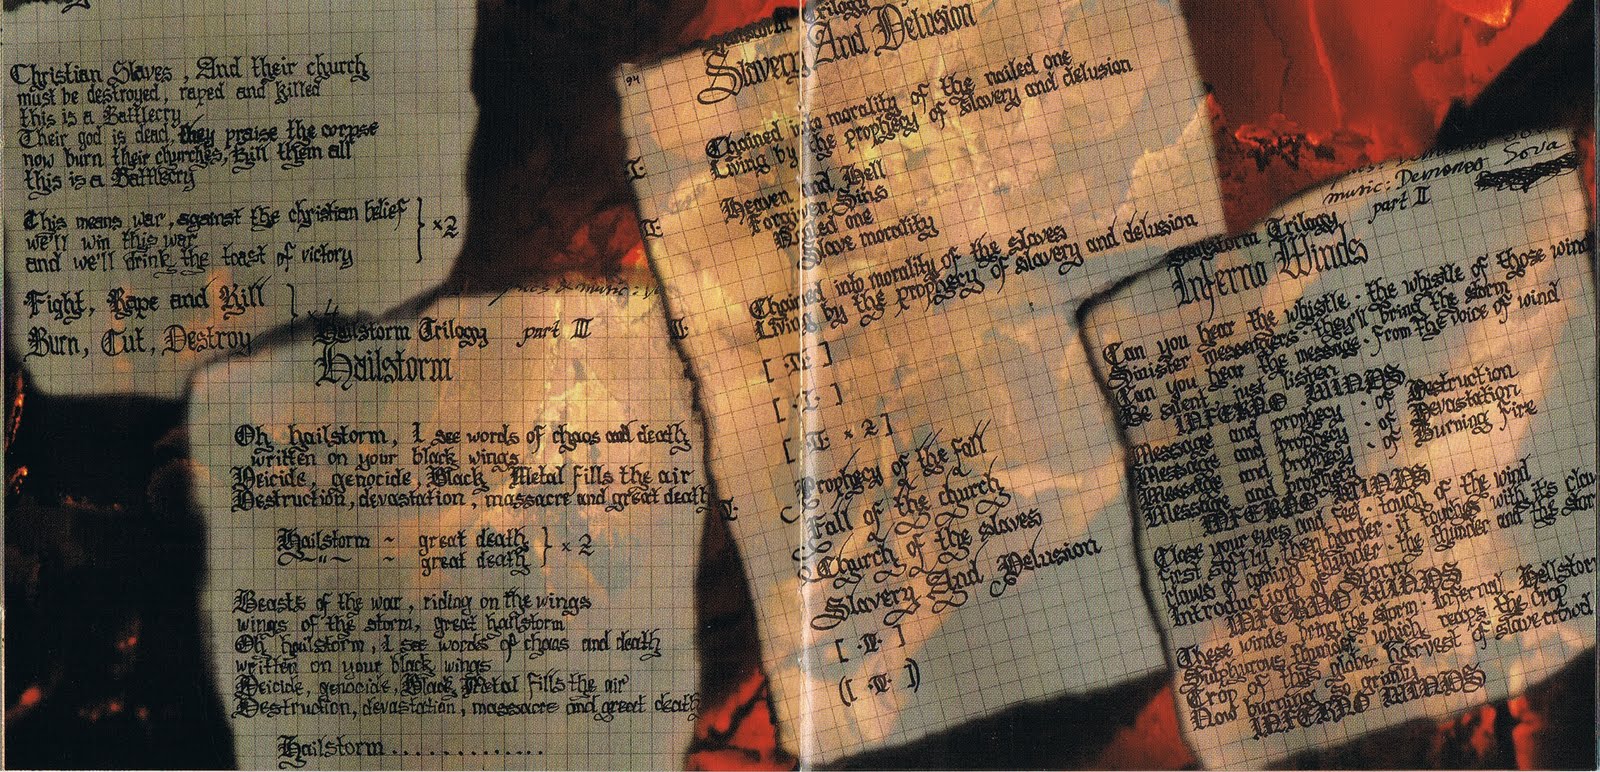 Christian Slaves, And their church
must be destroyed, raped and killed
this is a Battlecry
Their god is dead, they praise the corpse
now burn their churches, kill them all
this is a Battlecry
This means war, against the christian belief
we'll win this war
and we'll drink the toast of victory
} x2
Fight, Rape and Kill
Burn, Cut, Destroy
} x4
Hailstorm Trilogy part III
Hailstorm
Oh hailstorm, I see words of chaos and death
written on your black wings
Deicide, genocide, Black Metal fills the air
Destruction, devastation, massacre and great death
Hailstorm - great death
-"- - great death
} x2
Beasts of the war, riding on the wings
wings of the storm, great hailstorm
Oh hailstorm, I see words of chaos and death
written on your black wings
Deicide, genocide, Black Metal fills the air
Destruction, devastation, massacre and great death
Hailstorm..............
94
Trilogy
Slavery And Delusion
I.
Chained into morality of the nailed one
Living by the prophecy of slavery and delusion
I.
Heaven and Hell
Forgiven Sins
one
Slave morality
I.
Chained into morality of the slaves
Living by the prophecy of slavery and delusion
[ . I . ]
[ . I . ]
[ . I . x 2 ]
I.
Prophecy of the fall
Fall of the church
Church of the slaves
Slavery And Delusion
[ . I . ]
( . I . )
music: Demonos Sova
Hailstorm Trilogy part II
Inferno Winds
Can you hear the whistle - the whistle of those wind
Sinister messengers they'll bring the storm
Can you hear the message - from the voice of wind
Be silent, just listen
INFERNO WINDS
Message and prophecy - of Destruction
Message and prophecy - of Devastation
Message and prophecy - of Burning Fire
INFERNO WINDS
Close your eyes and feel - touch of the wind
First softly, then harder - it touches with it's claw
claws of coming thunder - the thunder and the stor
Introduction of Storm
INFERNO WINDS
These winds bring the storm - Infernal Hellstor
Sulphurous thunder which reaps the crop
Crop of this globe - harvest of slave-crowd
Now burning so grimly
INFERNO WINDS